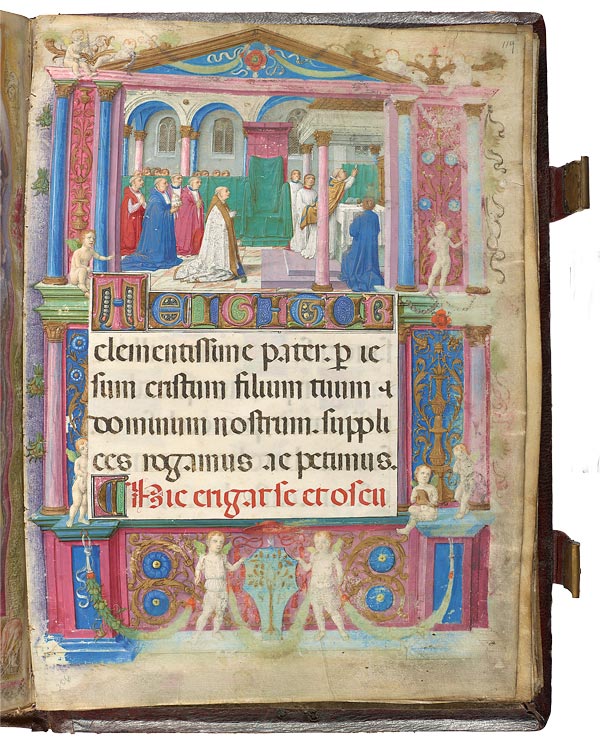 119
TE IGITUR
clementissime pater. ꝑ ie
sum cristum filium tuum ⁊
dominum nostrum. suppli
ces rogamus ac petimus.
Hic erigat se et oscu